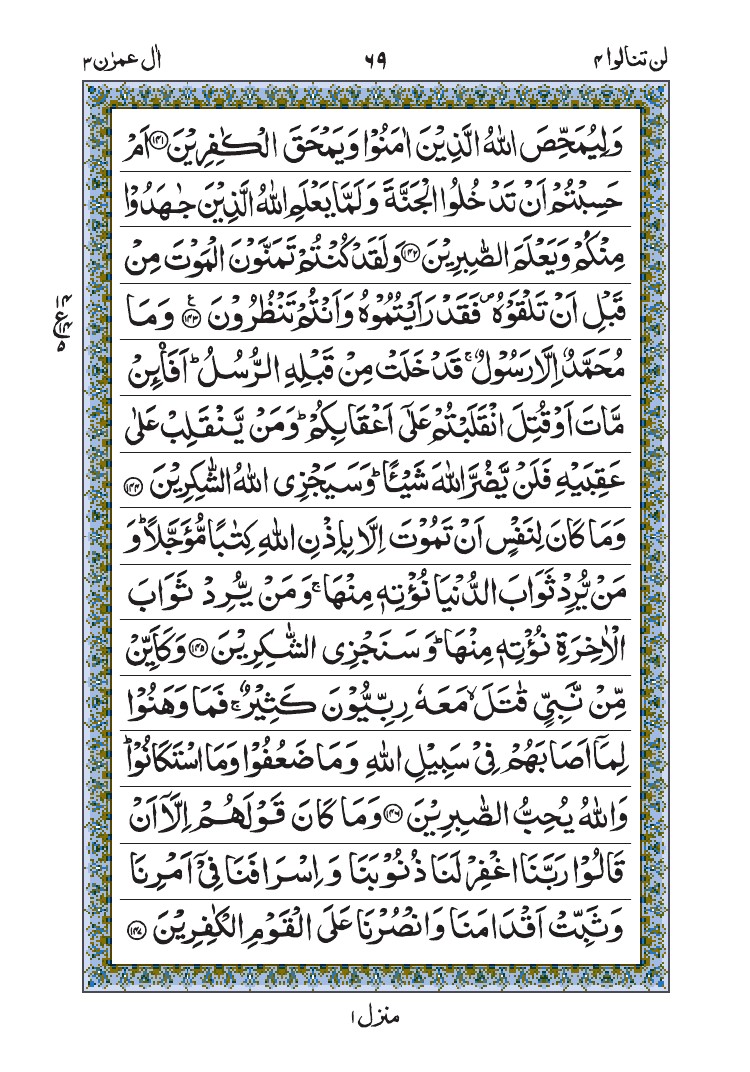 لن تنالوا ۴ ۶۹ اٰل عمرٰن ۳
وَلِيُمَحِّصَ اللّٰهُ الَّذِيْنَ اٰمَنُوْا وَيَمْحَقَ الْكٰفِرِيْنَ ﴿۱۴۱﴾ اَمْ
حَسِبْتُمْ اَنْ تَدْخُلُوا الْجَنَّةَ وَلَمَّا يَعْلَمِ اللّٰهُ الَّذِيْنَ جٰهَدُوْا
مِنْكُمْ وَيَعْلَمَ الصّٰبِرِيْنَ ﴿۱۴۲﴾ وَلَقَدْ كُنْتُمْ تَمَنَّوْنَ الْمَوْتَ مِنْ
قَبْلِ اَنْ تَلْقَوْهُ ۪ فَقَدْ رَاَيْتُمُوْهُ وَاَنْتُمْ تَنْظُرُوْنَ ﴿۱۴۳﴾ ع وَمَا
۱۴ ع ۱۴ ۵
مُحَمَّدٌ اِلَّا رَسُوْلٌ ۚ قَدْ خَلَتْ مِنْ قَبْلِهِ الرُّسُلُ ؕ اَفَا۟ئِنْ
مَّاتَ اَوْ قُتِلَ انْقَلَبْتُمْ عَلٰۤى اَعْقَابِكُمْ ؕ وَمَنْ يَّنْقَلِبْ عَلٰى
عَقِبَيْهِ فَلَنْ يَّضُرَّ اللّٰهَ شَيْـًٔا ؕ وَسَيَجْزِى اللّٰهُ الشّٰكِرِيْنَ ﴿۱۴۴﴾
وَمَا كَانَ لِنَفْسٍ اَنْ تَمُوْتَ اِلَّا بِاِذْنِ اللّٰهِ كِتٰبًا مُّؤَجَّلًا ؕ وَ
مَنْ يُّرِدْ ثَوَابَ الدُّنْيَا نُؤْتِهٖ مِنْهَا ۚ وَمَنْ يُّرِدْ ثَوَابَ
الْاٰخِرَةِ نُؤْتِهٖ مِنْهَا ؕ وَسَنَجْزِى الشّٰكِرِيْنَ ﴿۱۴۵﴾ وَكَاَيِّنْ
مِّنْ نَّبِىٍّ قٰتَلَ ۙ مَعَهٗ رِبِّيُّوْنَ كَثِيْرٌ ۚ فَمَا وَهَنُوْا
لِمَاۤ اَصَابَهُمْ فِىْ سَبِيْلِ اللّٰهِ وَمَا ضَعُفُوْا وَمَا اسْتَكَانُوْا ؕ
وَاللّٰهُ يُحِبُّ الصّٰبِرِيْنَ ﴿۱۴۶﴾ وَمَا كَانَ قَوْلَهُمْ اِلَّاۤ اَنْ
قَالُوْا رَبَّنَا اغْفِرْ لَنَا ذُنُوْبَنَا وَاِسْرَافَنَا فِىْۤ اَمْرِنَا
وَثَبِّتْ اَقْدَامَنَا وَانْصُرْنَا عَلَى الْقَوْمِ الْكٰفِرِيْنَ ﴿۱۴۷﴾
منزل ۱